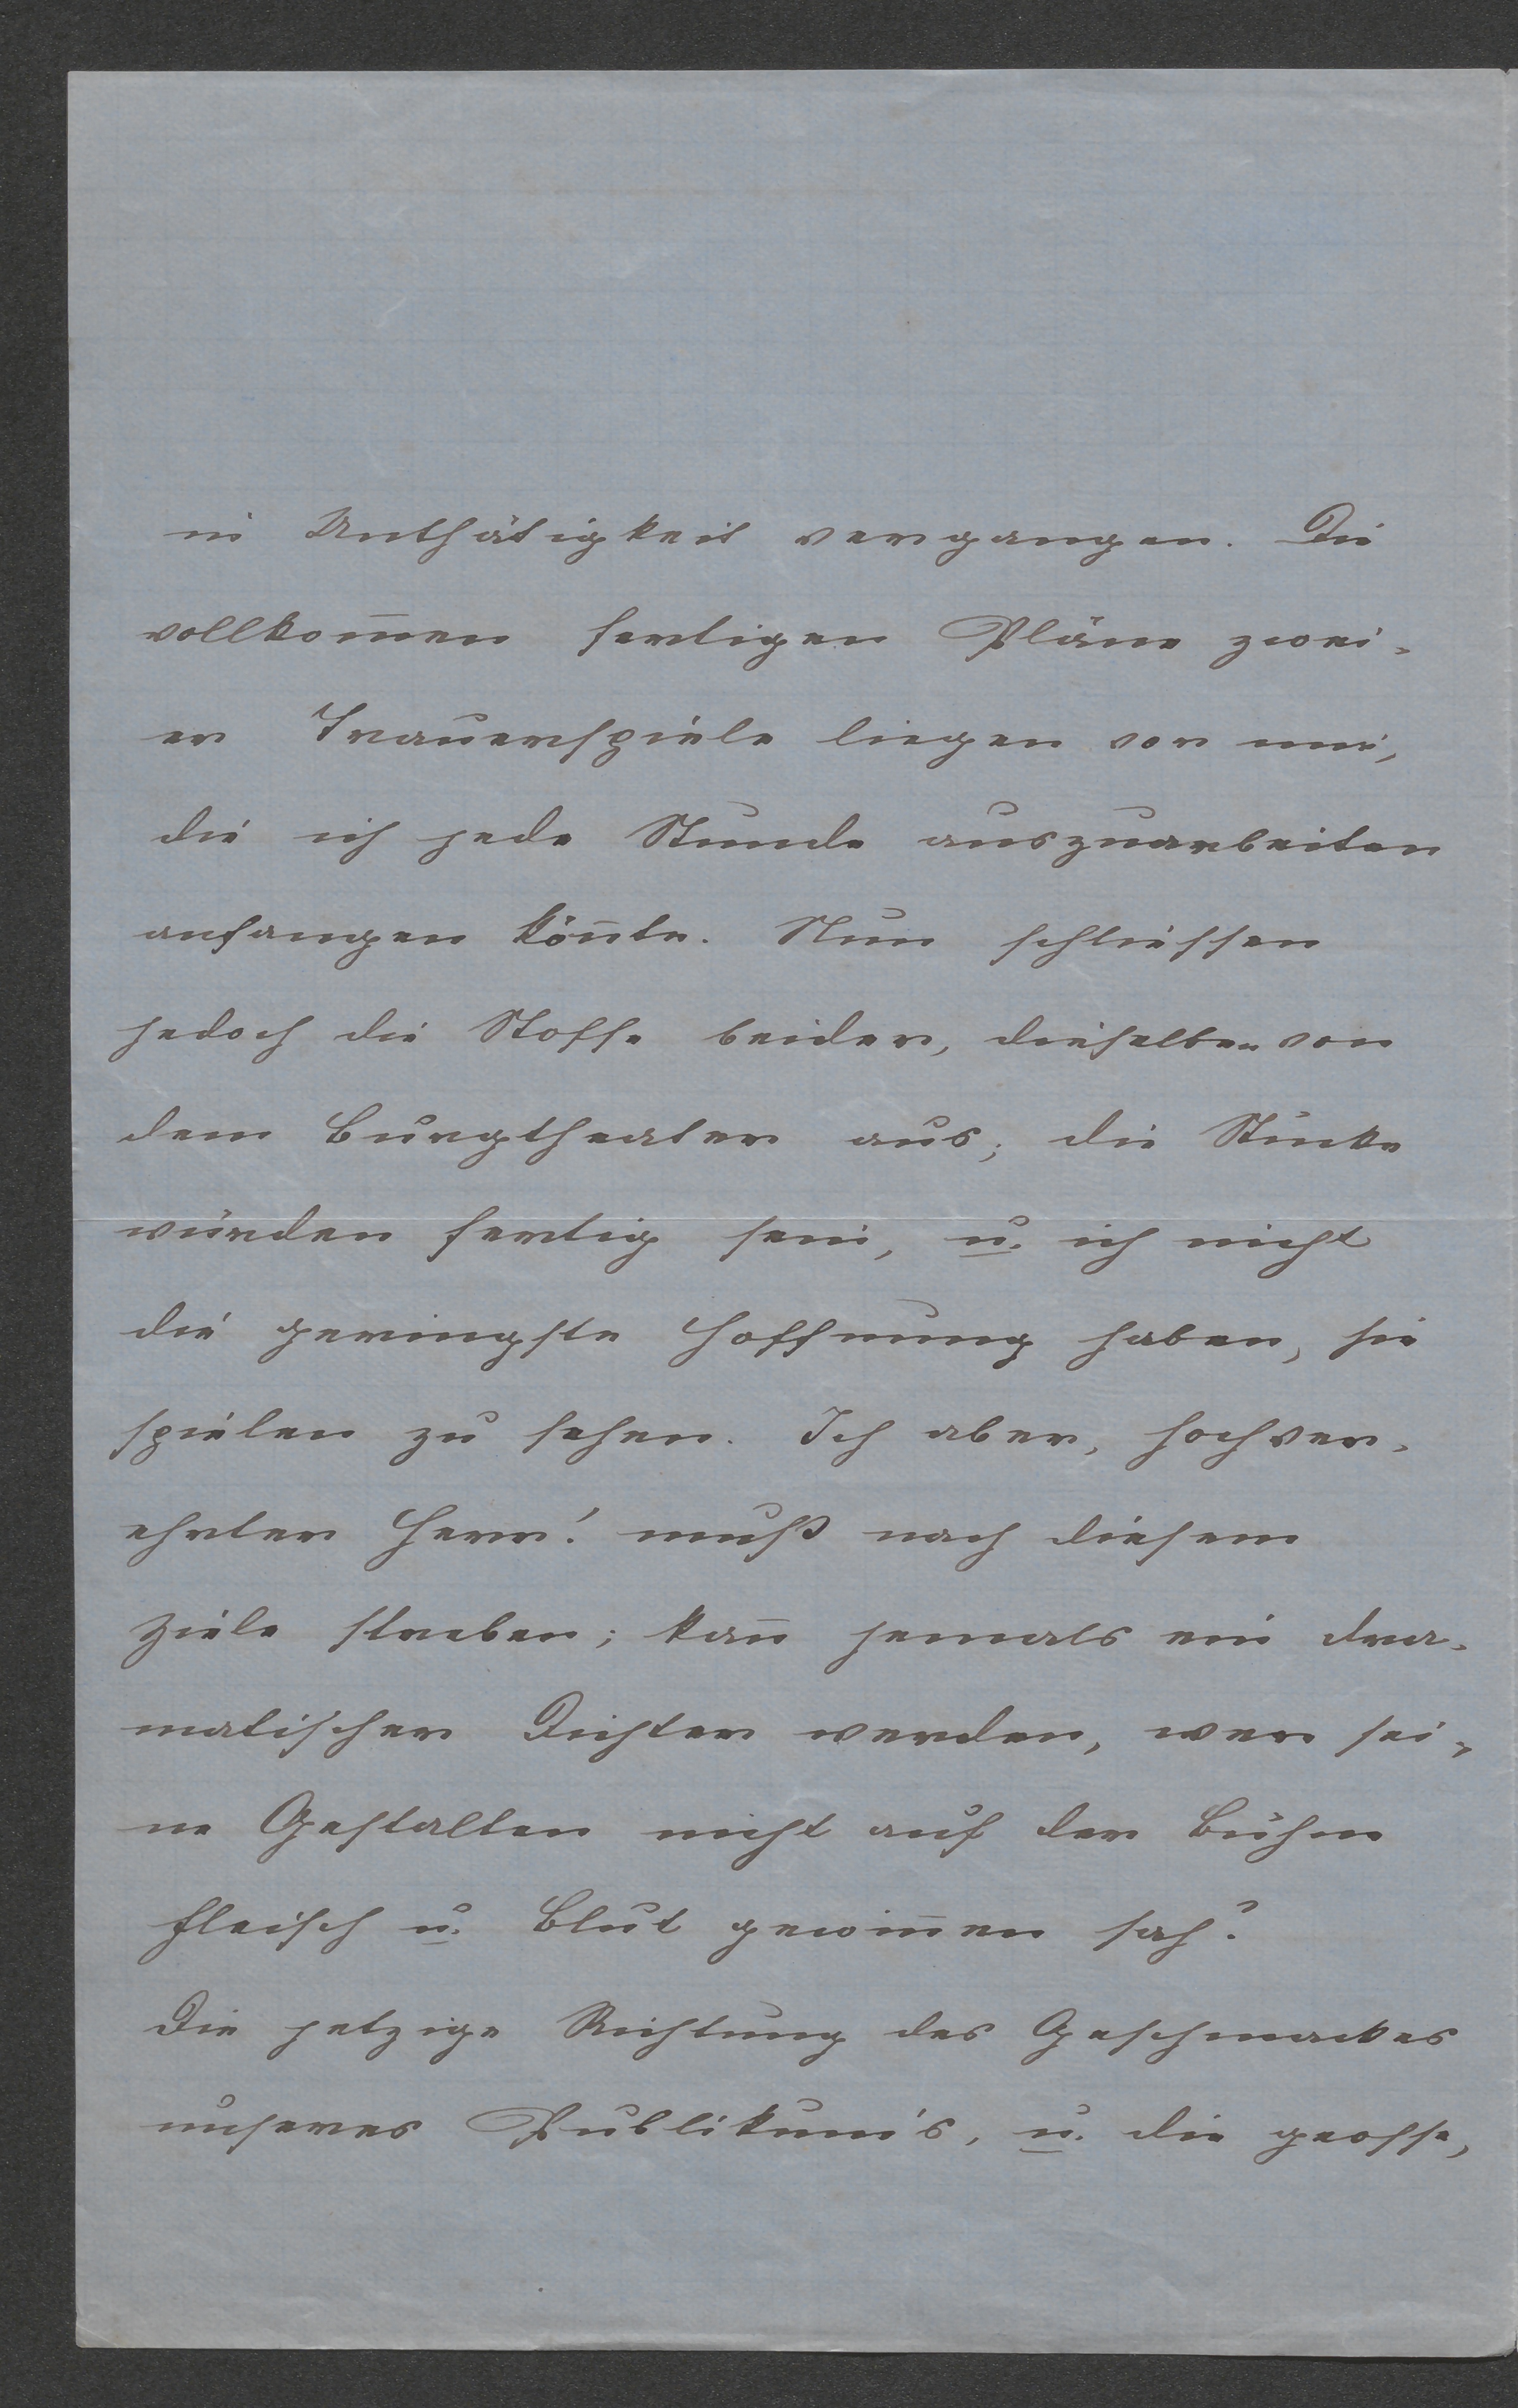 in Unthätigkeit vergangen. Die
vollkom̅en fertigen Pläne zwei-
er Trauerspiele liegen vor mir,
die ich jede Stunde auszuarbeiten
anfangen kön̅te. Nun schliessen
jedoch die Stoffe beider, dieselben von
dem Burgtheater aus; die Stücke
würden fertig sein, u. ich nicht
die geringste Hoffnung haben, sie
spielen zu sehen. Ich aber, hochver-
ehrter Herr! muß nach diesem
Ziele streben; kan̅ jemals ein dra-
matischer Dichter werden, wer sei-
ne Gestalten nicht auf der Bühne
Fleisch u. Blut gewin̅en sah?
Die jetzige Richtung des Geschmackes
unseres Publikum's, u. die grosse,